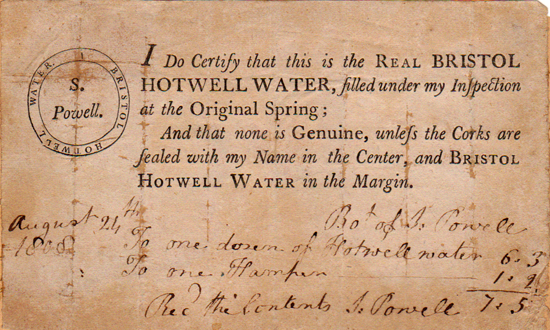 BRISTOL HOTWELL WATER
S.
Powell.
I Do Certify that this is the REAL BRISTOL
HOTWELL WATER, filled under my Inſpection
at the Original Spring;
And that none is Genuine, unleſs the Corks are
ſealed with my Name in the Center, and BRISTOL
HOTWELL WATER in the Margin.
August 24th
1808
Bot of S. Powell
To one dozen of Hotwell water 6: 3
To one Hamper 1: 2
Recd the Contents S. Powell 7: 5